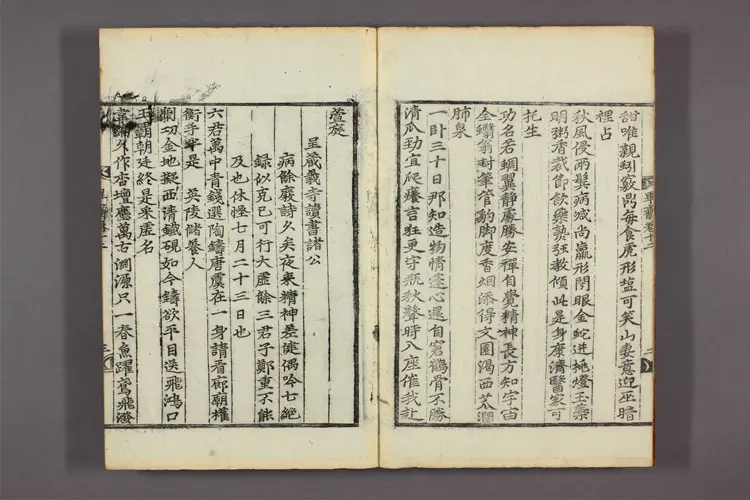 甜唯親剡竅禺每食虎形塩可笑山妻意迎巫瞎
裡占
秋風侵兩鬢病減尚羸形閉眼金蛇迸挑燈玉藥
明粥香裁節飲藥熟強教傾此是身康濟醫家可
托生
功名若蜩翼靜處勝安禪自覺精神長方知宇宙
全繙翁封筆管韵脚度香烟添得文園渴西茶澗
肺泉
一卧三十日那知造物情遠心還自窘鶴骨不勝
清爪劲宜爬癢言狂更守瓶秋聲時八座催我赴
萱庭
呈藏義寺讀書諸公
病餘廢詩久矣夜来精神差健偶吟七絶
録似克己可行大虛餘三君子鄭重不能
及也休怪七月二十三日也
六君萬中青錢選陶鑄唐虞在一身請看廊廟權
衡手 是英陵儲養人
劚切金地擬西清鐵硯如今鑄欲平目送飛鴻口
王覇朝廷終是釆虛名
編久作杏壇塵萬古淵源只一春魚躍鳶飛潑